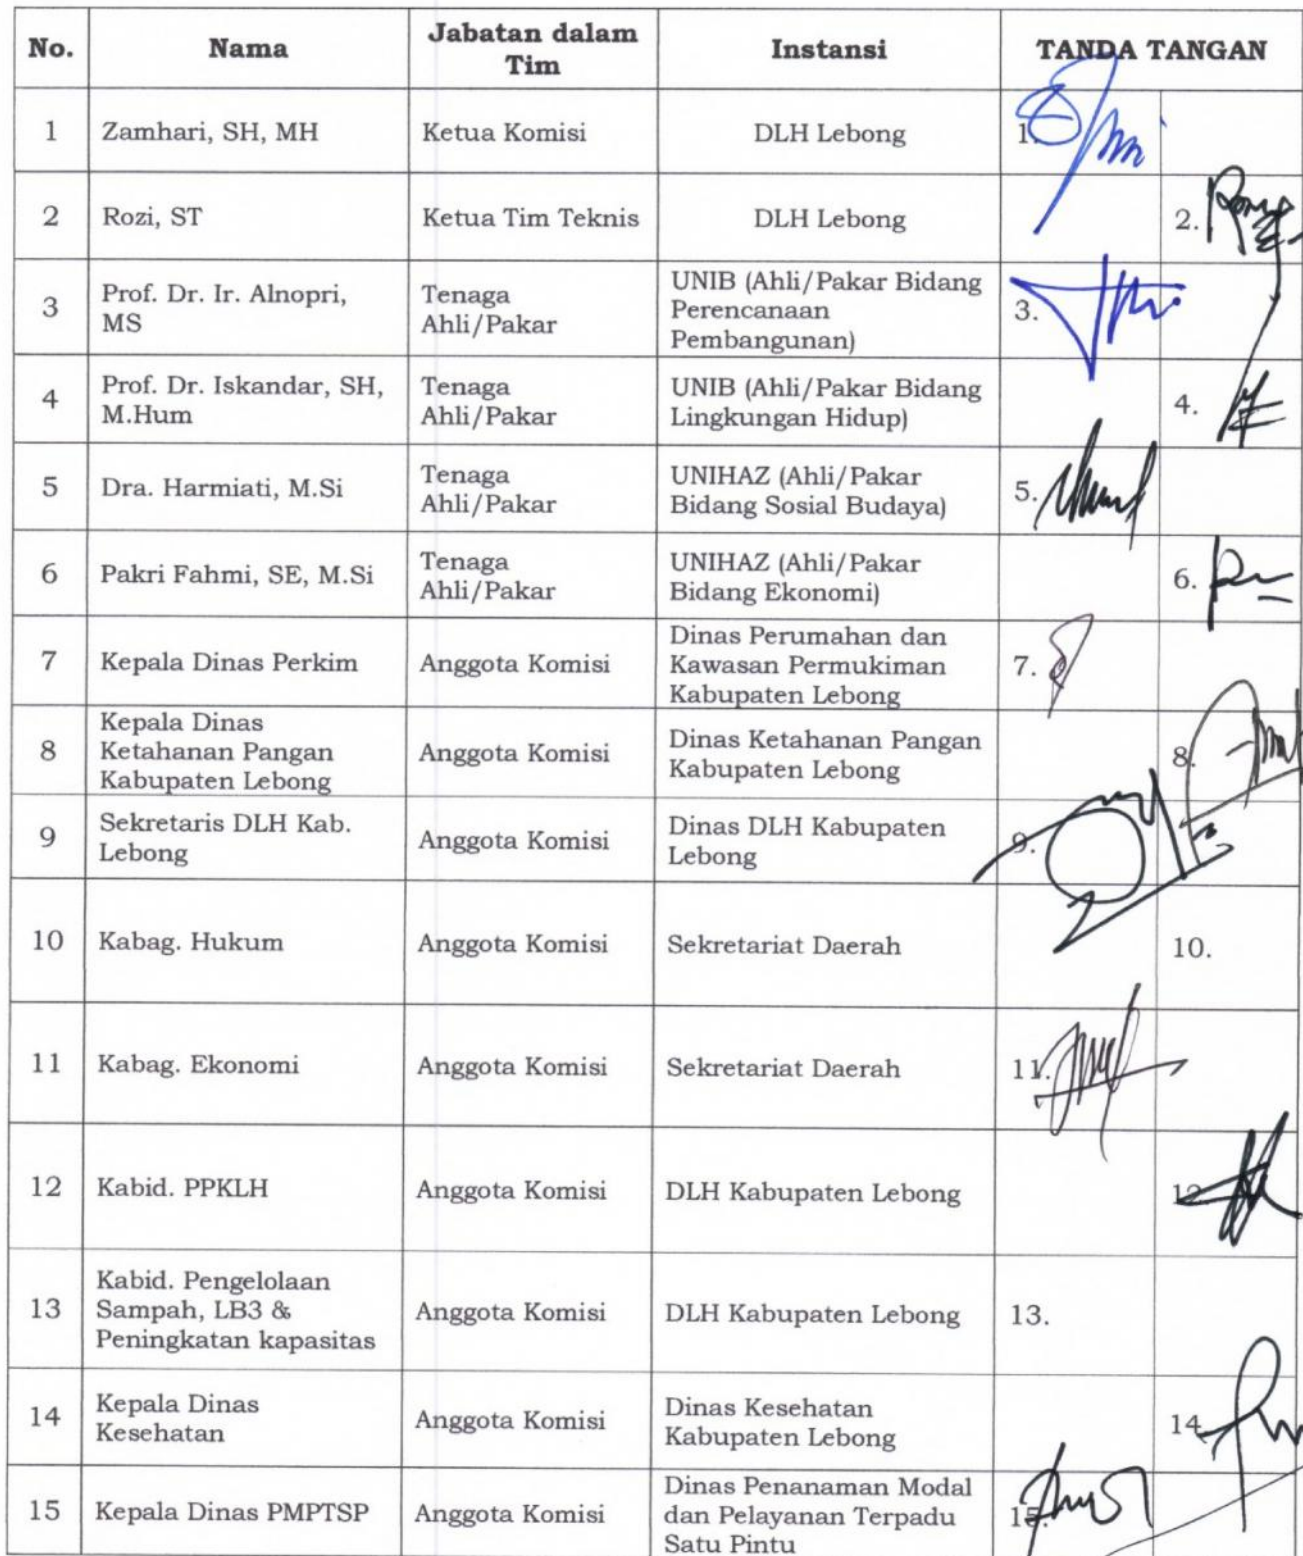 No.
Nama
Jabatan dalam
Tim
Instansi
TANDA TANGAN
1
Zamhari, SH, MH
Ketua Komisi
DLH Lebong
1.
2
Rozi, ST
Ketua Tim Teknis
DLH Lebong
2.
3
Prof. Dr. Ir. Alnopri,
MS
Tenaga
Ahli/Pakar
UNIB (Ahli/Pakar Bidang
Perencanaan
Pembangunan)
3.
4
Prof. Dr. Iskandar, SH,
M.Hum
Tenaga
Ahli/Pakar
UNIB (Ahli/Pakar Bidang
Lingkungan Hidup)
4.
5
Dra. Harmiati, M.Si
Tenaga
Ahli/Pakar
UNIHAZ (Ahli/Pakar
Bidang Sosial Budaya)
5.
6
Pakri Fahmi, SE, M.Si
Tenaga
Ahli/Pakar
UNIHAZ (Ahli/Pakar
Bidang Ekonomi)
6.
7
Kepala Dinas Perkim
Anggota Komisi
Dinas Perumahan dan
Kawasan Permukiman
Kabupaten Lebong
7.
8
Kepala Dinas
Ketahanan Pangan
Kabupaten Lebong
Anggota Komisi
Dinas Ketahanan Pangan
Kabupaten Lebong
8.
9
Sekretaris DLH Kab.
Lebong
Anggota Komisi
Dinas DLH Kabupaten
Lebong
9.
10
Kabag. Hukum
Anggota Komisi
Sekretariat Daerah
10.
11
Kabag. Ekonomi
Anggota Komisi
Sekretariat Daerah
11.
12
Kabid. PPKLH
Anggota Komisi
DLH Kabupaten Lebong
12.
13
Kabid. Pengelolaan
Sampah, LB3 &
Peningkatan kapasitas
Anggota Komisi
DLH Kabupaten Lebong
13.
14
Kepala Dinas
Kesehatan
Anggota Komisi
Dinas Kesehatan
Kabupaten Lebong
14.
15
Kepala Dinas PMPTSP
Anggota Komisi
Dinas Penanaman Modal
dan Pelayanan Terpadu
Satu Pintu
15.